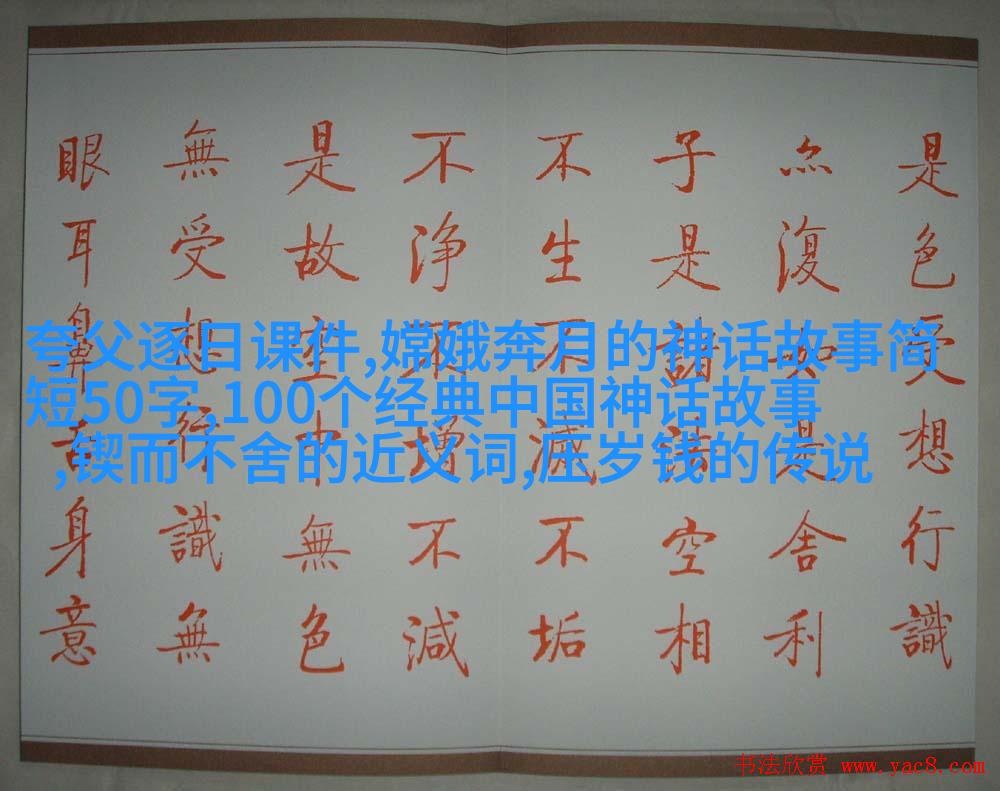 是色受想行識
亦復如是舍利
子是諸法空相
不生不滅不垢
不浄不增不減
是故空中無色
無受想行識無
眼耳鼻舌身意
夸父逐日课件,嫦娥奔月的神话故事简
短50字,100个经典中国神话故事
,锲而不舍的近义词,压岁钱的传说
书法欣赏 www.yac8.com